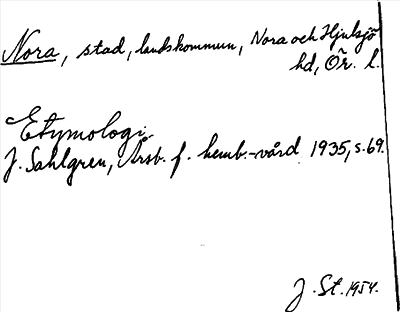 Nora, stad, landskommun, Nora och Hjulsjö
hd, Ör. l.
Etymologi
J. Sahlgren, Årsb. f. hemb.-vård 1935, s. 69.
J. St. 1954.